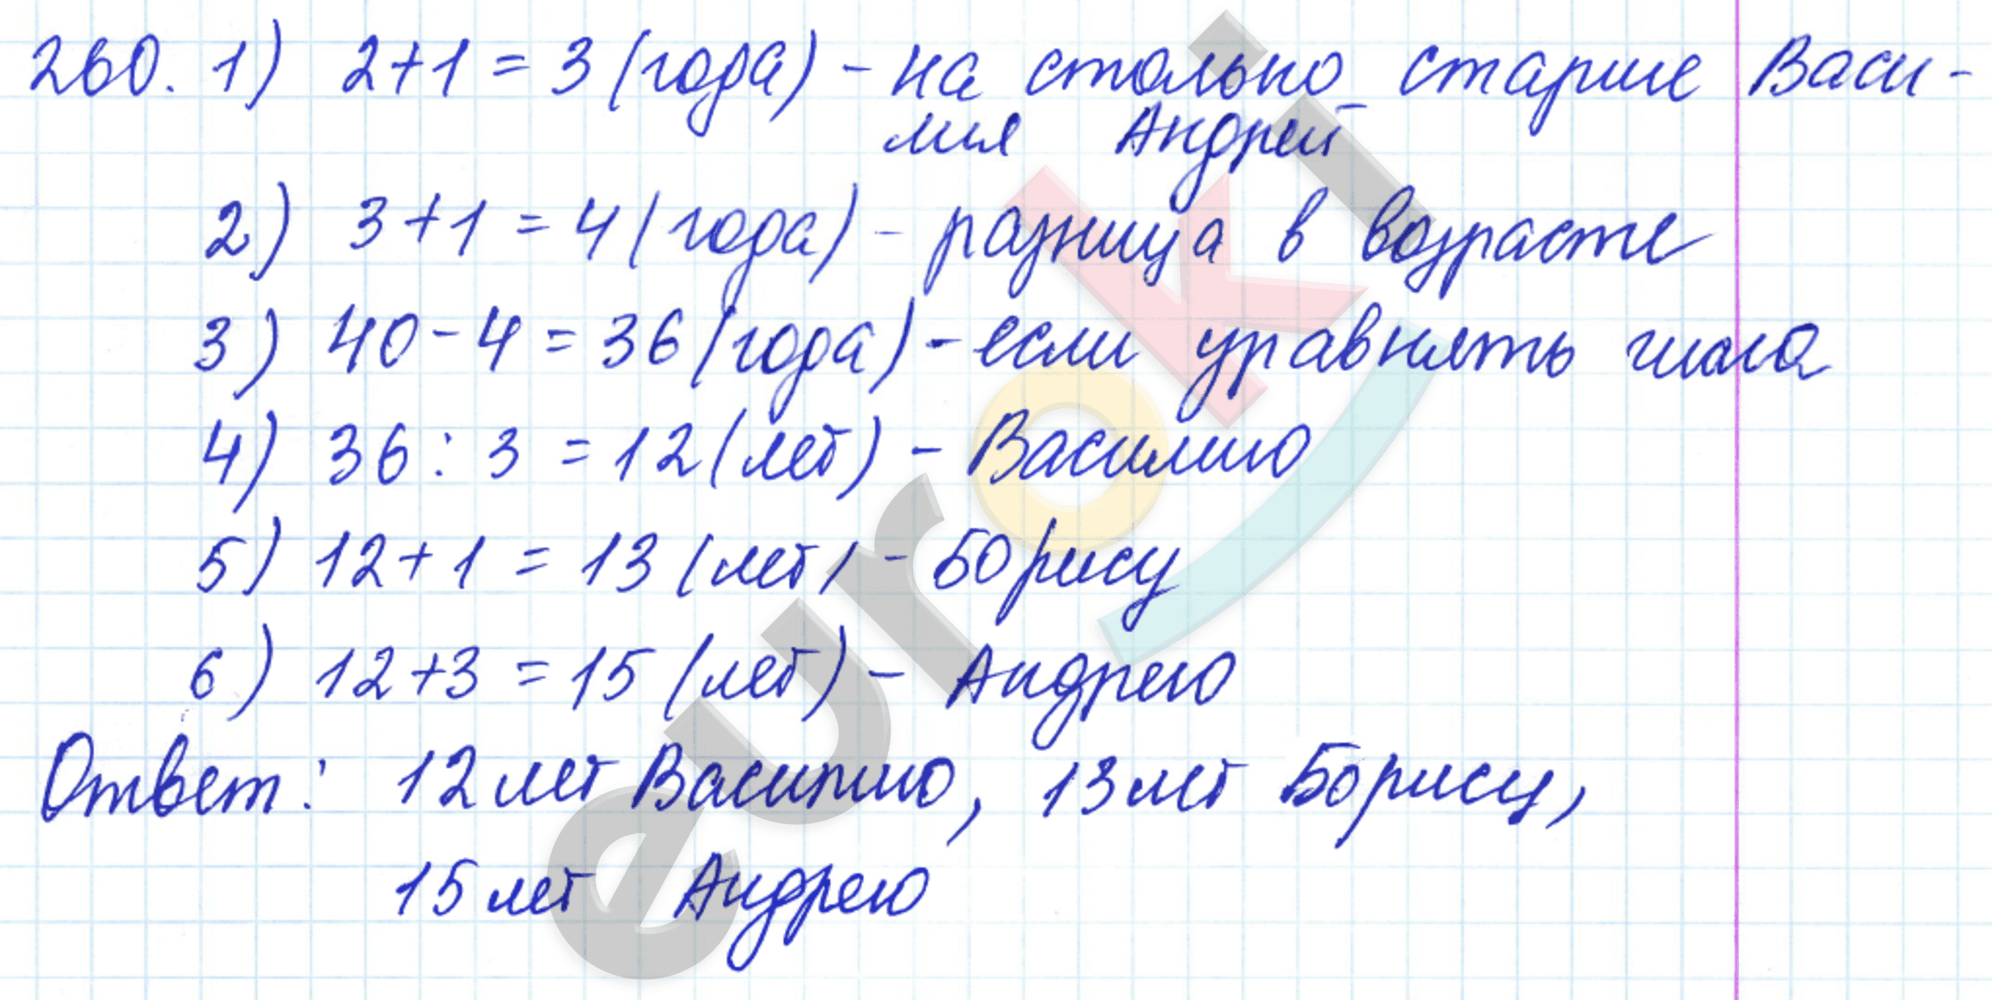 260. 1) 2+1 = 3 (года) - на столько старше Васи-
лия Андрей
2) 3+1 = 4 (года) - разница в возрасте
3) 40-4 = 36 (года) - если уравнять числа
4) 36 : 3 = 12 (лет) - Василию
5) 12+1 = 13 (лет) - Борису
6) 12+3 = 15 (лет) - Андрею
Ответ: 12 лет Василию, 13 лет Борису,
15 лет Андрею
euroki